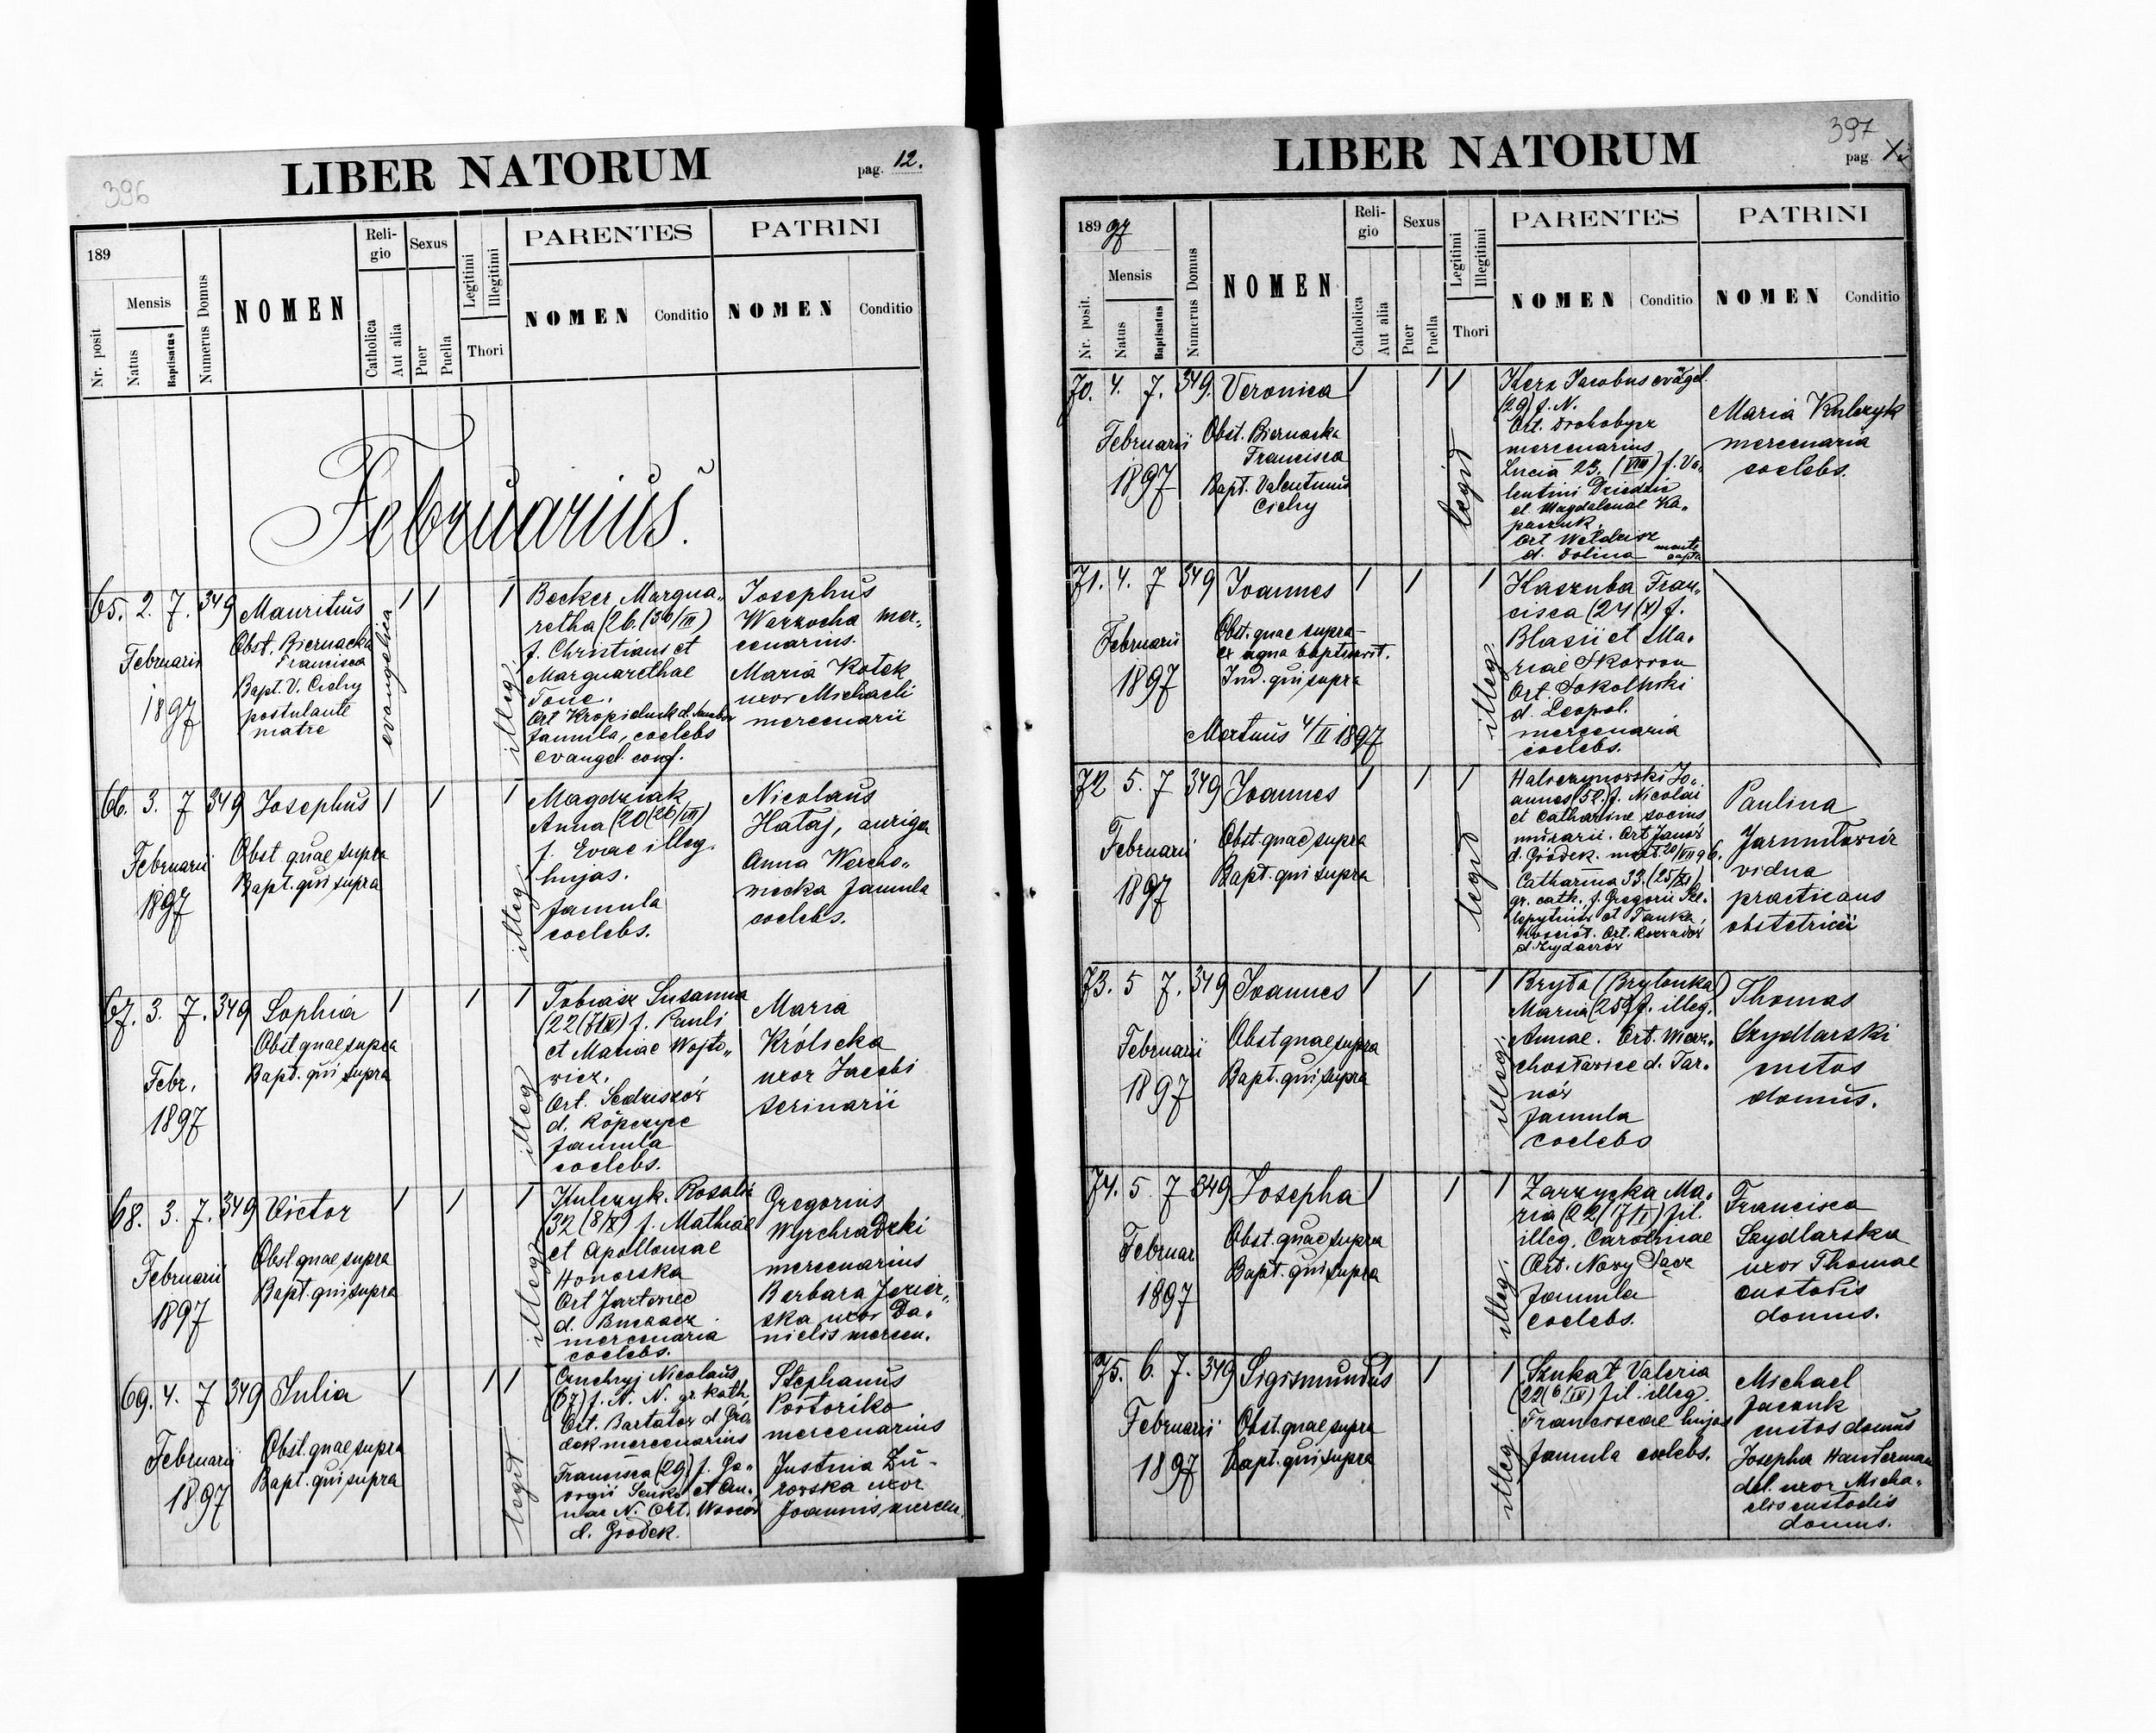 396
LIBER NATORUM
pag. 12.
189
Mensis
Nr. posit
Natus
Baptisatus
Numerus Domus
NOMEN
Reli-
gio
Catholica
Aut alia
Sexus
Puer
Puella
Legitimi
Illegitimi
Thori
PARENTES
NOMEN
Conditio
PATRINI
NOMEN
Conditio
Februarius.
65. 2. 7. 349
Februarii
1897
Mauritius
Obst. Biernacka
Francisca
Bapt. V. Cichy
postulante
matre
evangelica
1 1 1
illeg.
Becker Margua„
retha (26. (30/III)
f. Christiani et
Marguarethae
Ort
famula, coelebs
evangel. conf.
Josephus
Warzocha mer„
cenarius.
Maria Kotek
uxor Michaeli
mercenarii
66. 3. 7 349
Februarii
1897
Josephus
Obst quae supra
Bapt. qui supra
1 1 1
illeg.
Magdziak
Anna (20 (26/VII)
f. Evae illeg.
hujas.
famula
coelebs.
Nicolaus
Hataj, auriga
Anna
famula
coelebs.
67. 3. 7. 349
Febr.
1897
Sophia
Obst quae supra
Bapt. qui supra
1 1 1
illeg
Tobiasz Susanna
f. Pauli
et Mariae Wojto„
wicz.
Ort. Sedziszów
d. Ropczyce
famula
coelebs.
Maria
Królicka
uxor Jacobi
scrinarii
68. 3. 7. 349
Februarii
1897
Victor
Obst quae supra
Bapt. qui supra
1 1 1
illeg.
Kulczyk. Rosalia
32 (8/X) f. Mathiae
et Apolloniae
Honorska
Ort
d. Buczacz
mercenaria
coelebs.
Gregorius
mercenarius
Barbara Jezier„
ska uxor Da„
nielis mercen.
69. 4. 7 349
Februarii
1897
Julia
Obst. quae supra
Bapt. qui supra
1 1 1
legit.
Onchryj Nicolaus
(67) f. A. N. gr. kath.
Ort. Bartatów d. Gró„
dek mercenarius
Francisca (29) f. Ge„
orgii Senko et An„
nae N. Ort.
d. Gródek.
Stephanus
Postoriko
mercenarius
Justina Zu-
rowska uxor
Joannis mercen.
397
LIBER NATORUM
pag
189 97
Mensis
Nr. posit.
Natus
Baptisatus
Numerus Domus
NOMEN
Reli-
gio
Catholica
Aut alia
Sexus
Puer
Puella
Legitimi
Illegitimi
Thori
PARENTES
NOMEN
Conditio
PATRINI
NOMEN
Conditio
70. 4. 7. 349.
Februarii
1897
Veronica
Obst. Biernacka
Francisca
Bapt. Valentinus
Cichy
1 1 1
legit
Herz Jacobus evāgel.
(29) f. N.
Ort. Drohobycz
mercenarius
Lucia 23. (VIII) f. Va„
lentini Dziedzic
et Magdalenae Ka„
paczuk.
Ort Wełdzisz
d. Dolina
Maria Kulczyk
mercenaria
coelebs.
71. 4. 7 349
Februarii
1897
Joannes
Obst. quae supra
ex aqua baptisavit.
Ind. qui supra
Mortuus 4/II 1897
1 1 1
illeg
Kaszuba Fran„
cisca (24 (X) f.
Blasii et Ma„
riae Skowron
Ort.
d. Leopol.
mercenaria
coelebs.
72 5. 7 349
Februarii
1897
Joannes
Obst quae supra
Bapt. qui supra
1 1 1
legit
Halsczynowski Jo„
annes (52) f. Nicolai
et Catharine socius
musarii. Ort Janów
d. Gródek. mort. 20/VII 96.
Catharina 33. (25/XI)
gr. cath., f. Gregorii
et
Ort.
d. Zydaczów
Paulina
vidua
practicans
obstetricii
73. 5 7. 349
Februarii
1897
Joannes
Obst quae supra
Bapt. qui supra
1 1 1
illeg.
Bryła (Brylonka)
Maria (25) f. illeg.
Annae. Ort. Wierz„
chosławice d. Tar„
nów
famula
coelebs
Thomas
Szydlarski
custos
domus.
74. 5. 7 349
Februar
1897
Josepha
Obst. quae supra
Bapt. qui supra
1 1 1
illeg.
Zarzycka Ma„
ria fil.
illeg. Carolinae
Ort. Novy Sącz
famula
coelebs.
Francisca
Szydlarska
uxor Thomae
custodis
domus.
75. 6. 7. 349
Februarii
1897
Sigismundus
Obst. quae supra
bapt. qui supra
1 1
illeg.
Szukat Valeria
(22 (6/IV) fil. illeg.
Franciscae hujas
famula coelebs.
Michael
custos domus
Josepha
uxor Micha„
elis custodis
domus.